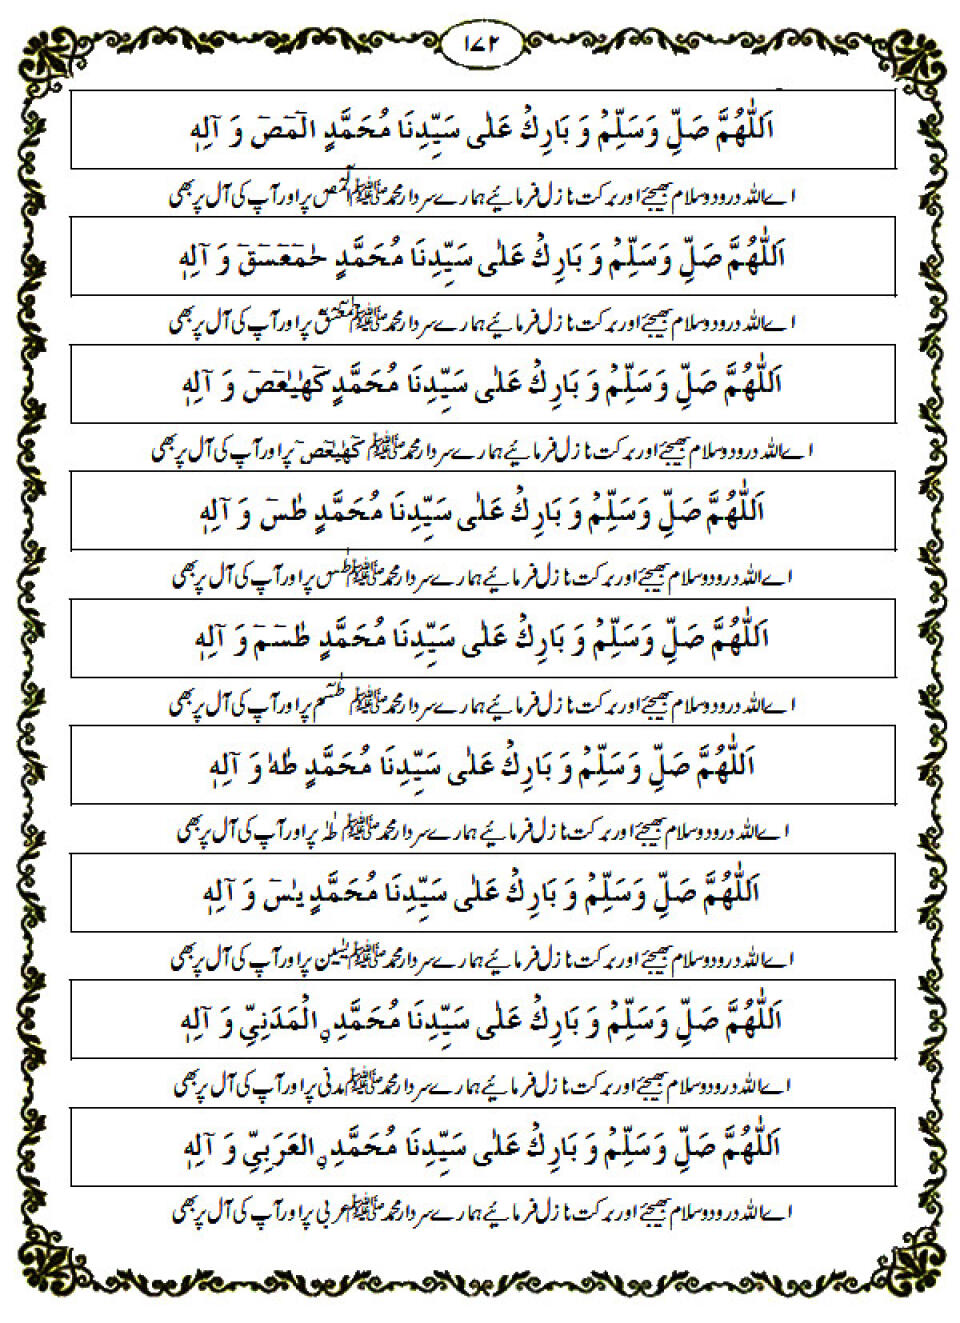 ۱۷۲
اَللّٰهُمَّ صَلِّ وَسَلِّمْ وَ بَارِكْ عَلٰى سَيِّدِنَا مُحَمَّدٍ الٓمٓصٓ وَ آلِهٖ
اے اللہ درود و سلام بھیجئے اور برکت نازل فرمائیے ہمارے سردار محمد ﷺ الٓمٓصٓ پر اور آپ کی آل پر بھی
اَللّٰهُمَّ صَلِّ وَسَلِّمْ وَ بَارِكْ عَلٰى سَيِّدِنَا مُحَمَّدٍ حٰمٓعٓسٓقٓ وَ آلِهٖ
اے اللہ درود و سلام بھیجئے اور برکت نازل فرمائیے ہمارے سردار محمد ﷺ حٰمٓعٓسٓقٓ پر اور آپ کی آل پر بھی
اَللّٰهُمَّ صَلِّ وَسَلِّمْ وَ بَارِكْ عَلٰى سَيِّدِنَا مُحَمَّدٍ كٓهٰيٰعٓصٓ وَ آلِهٖ
اے اللہ درود و سلام بھیجئے اور برکت نازل فرمائیے ہمارے سردار محمد ﷺ كٓهٰيٰعٓصٓ پر اور آپ کی آل پر بھی
اَللّٰهُمَّ صَلِّ وَسَلِّمْ وَ بَارِكْ عَلٰى سَيِّدِنَا مُحَمَّدٍ طٰسٓ وَ آلِهٖ
اے اللہ درود و سلام بھیجئے اور برکت نازل فرمائیے ہمارے سردار محمد ﷺ طٰس پر اور آپ کی آل پر بھی
اَللّٰهُمَّ صَلِّ وَسَلِّمْ وَ بَارِكْ عَلٰى سَيِّدِنَا مُحَمَّدٍ طٰسٓمٓ وَ آلِهٖ
اے اللہ درود و سلام بھیجئے اور برکت نازل فرمائیے ہمارے سردار محمد ﷺ طٰسٓمٓ پر اور آپ کی آل پر بھی
اَللّٰهُمَّ صَلِّ وَسَلِّمْ وَ بَارِكْ عَلٰى سَيِّدِنَا مُحَمَّدٍ طٰهٰ وَ آلِهٖ
اے اللہ درود و سلام بھیجئے اور برکت نازل فرمائیے ہمارے سردار محمد ﷺ طٰہٰ پر اور آپ کی آل پر بھی
اَللّٰهُمَّ صَلِّ وَسَلِّمْ وَ بَارِكْ عَلٰى سَيِّدِنَا مُحَمَّدٍ يٰسٓ وَ آلِهٖ
اے اللہ درود و سلام بھیجئے اور برکت نازل فرمائیے ہمارے سردار محمد ﷺ یٰسین پر اور آپ کی آل پر بھی
اَللّٰهُمَّ صَلِّ وَسَلِّمْ وَ بَارِكْ عَلٰى سَيِّدِنَا مُحَمَّدِ ۣالْمَدَنِيِّ وَ آلِهٖ
اے اللہ درود و سلام بھیجئے اور برکت نازل فرمائیے ہمارے سردار محمد ﷺ مدنی پر اور آپ کی آل پر بھی
اَللّٰهُمَّ صَلِّ وَسَلِّمْ وَ بَارِكْ عَلٰى سَيِّدِنَا مُحَمَّدِ ۣالعَرَبِيِّ وَ آلِهٖ
اے اللہ درود و سلام بھیجئے اور برکت نازل فرمائیے ہمارے سردار محمد ﷺ عربی پر اور آپ کی آل پر بھی